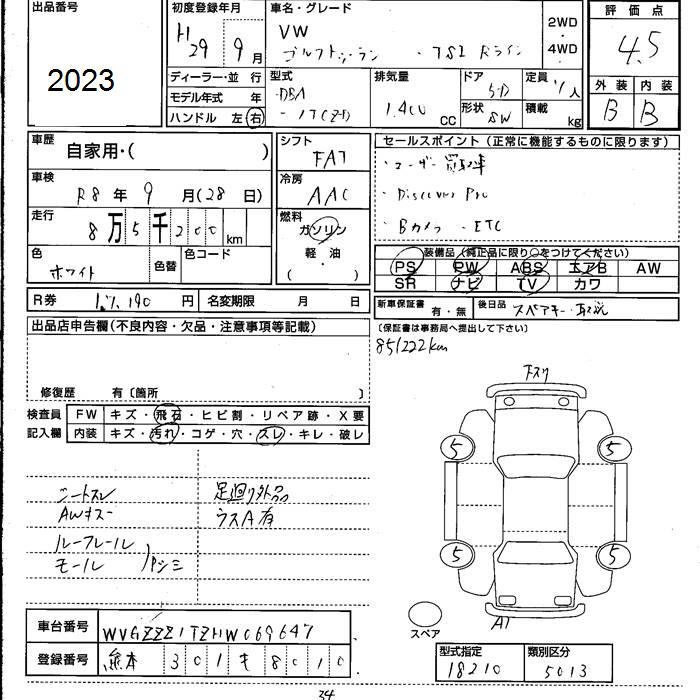 出品番号
2023
初度登録年月
H29 9月
車名・グレード
VW
ゴルフトゥーラン ・TSI Rライン
2WD
・
4WD
評価点
4.5
外装 内装
B B
ディーラー・並 行
モデル年式 年
ハンドル 左・右
型式
DBA
-1T(ZD)
排気量
1.400 CC
ドア
5D
形状 SW
定員 7人
積載 kg
車歴
自家用・( )
車検
R8年 9月(28日)
走行
8万5千200km
色
ホワイト
色替
色コード
シフト
FAT
冷房
AAC
燃料
ガソリン
軽・油
( )
セールスポイント (正常に機能するものに限ります)
・ユーザー買取車
・Discover Pro
・Bカメラ ・ETC
装備品 (純正品に限り○をつけてください)
PS PW ABS エアB AW
SR ナビ TV カワ
R券 17,190円
名変期限 月 日
新車保証書 有・無
後日品 スペアキー・取説
出品店申告欄(不良内容・欠品・注意事項等記載)
(保証書は事務局へ提出して下さい)
85,222km
修復歴 有〔箇所 〕
検査員
記入欄
FW キズ・飛石・ヒビ割・リペア跡・X要
内装 キズ・汚れ・コゲ・穴・スレ・キレ・破レ
シートスレ
AWキズ
ルーフレール
モール
足廻り外品
ウスA有
下スリ
5
5
5
5
A1
スペア
車台番号 WVGZZZ1TZHW069647
登録番号 熊本 301 も 8010
型式指定 18210
類別区分 5013
34